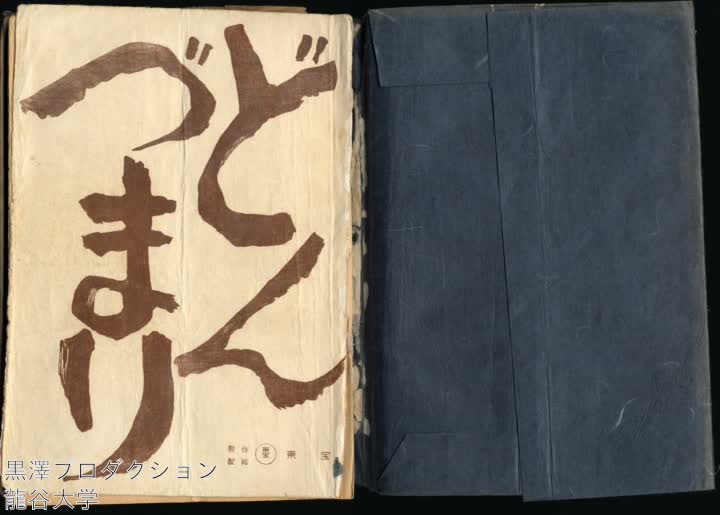 どん
づまり
製作
配給
東宝
東宝
黒澤プロダクション
龍谷大学